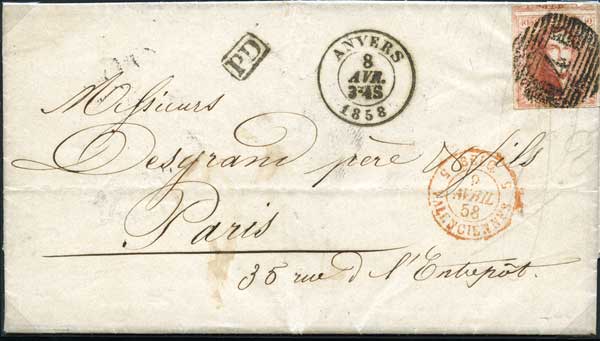 PD
ANVERS
8
AVR.
3-4S
1858
40 40
Messieurs
Desgrand père & fils
Paris
35 rue de l'Entrepôt.
5 BELG. 5
9
AVRIL
58
VALENCIENNES